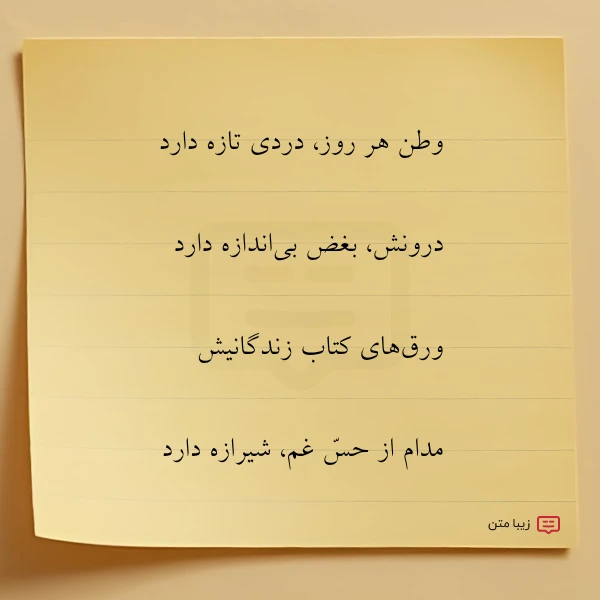 وطن هر روز، دردی تازه دارد
درونش، بغض بی‌اندازه دارد
ورق‌های کتاب زندگانیش
مدام از حسّ غم، شیرازه دارد
زیبا متن